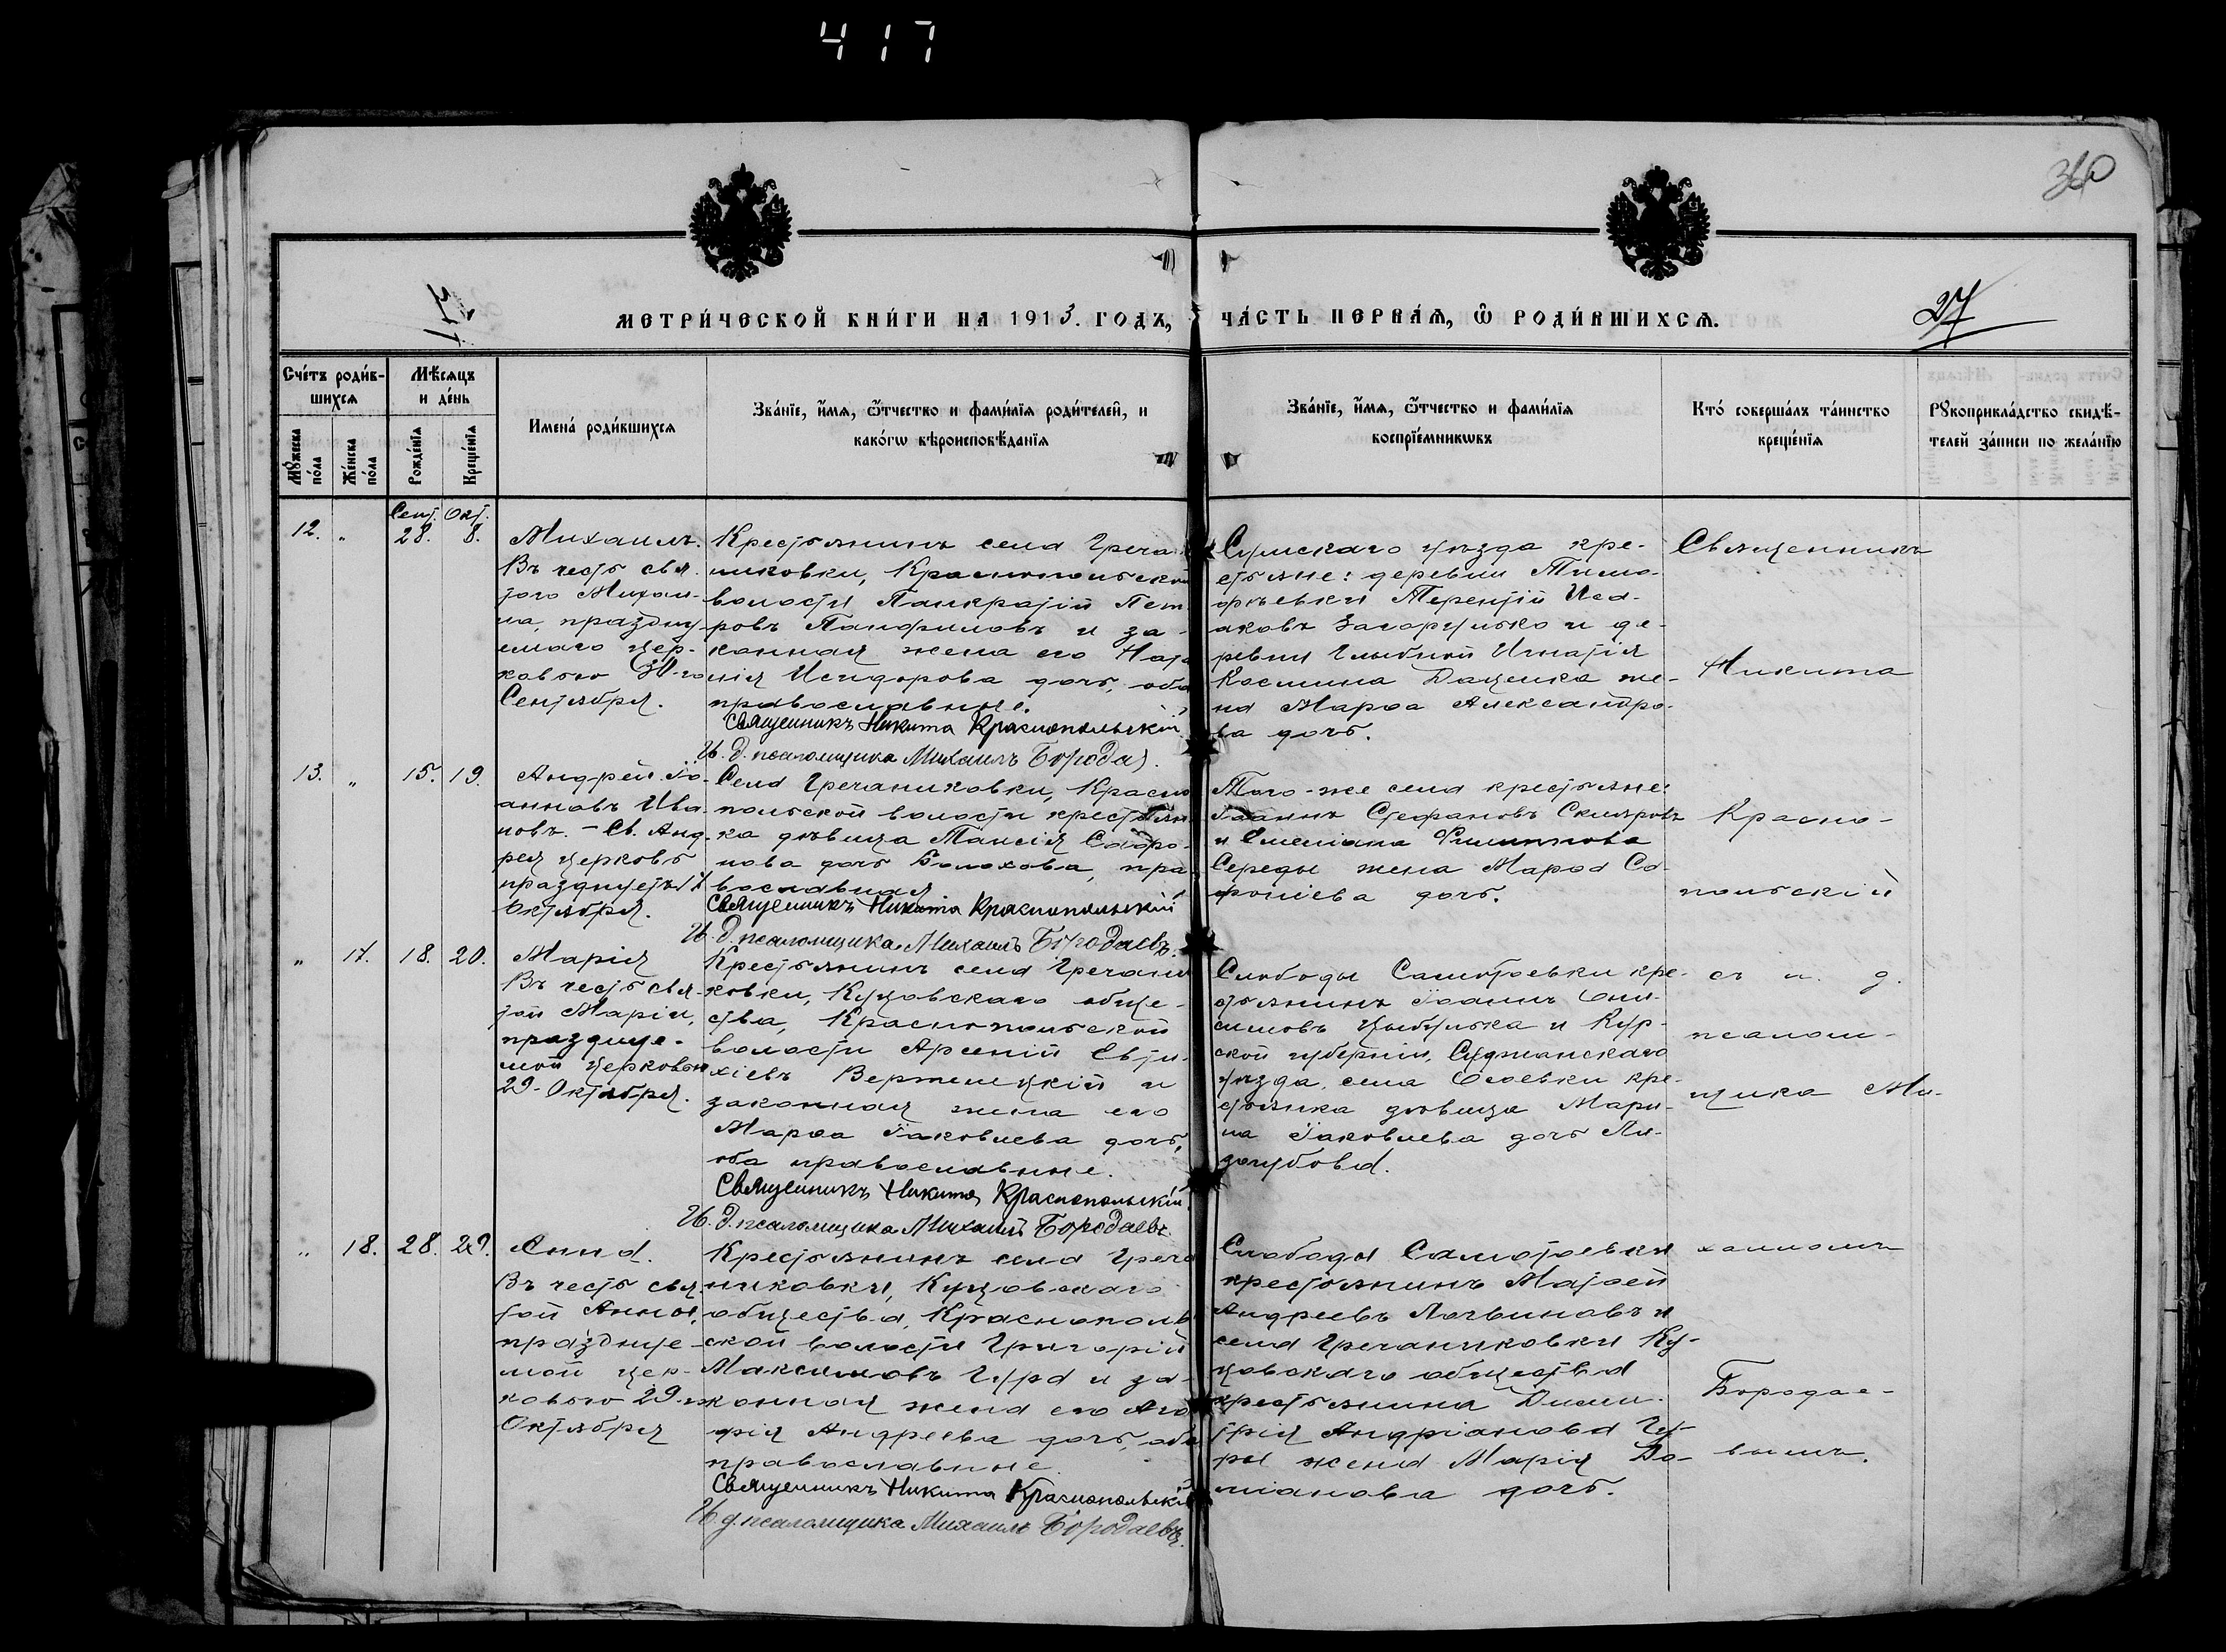 417
360
27
МЕТРИ́ЧЕСКОЙ КНИ́ГИ НА 1913. ГОДЪ,
ЧА́СТЬ ПЕРВАѦ, Ѽ РОДИ́ВШИХСѦ.
Сче́тъ роди́в-
шихсѧ
Мꙋ́жеска по́ла
Же́нска по́ла
Мѣ́сѧцъ
и де́нь
Рожде́нїѧ
Креще́нїѧ
Имена́ роди́вшихсѧ
Зва́нїе, и҆́мѧ, ѻ҆́тчество и фами́лїѧ роди́телей, и
како́гѡ вѣроисповѣ́данїѧ
Зва́нїе, и҆́мѧ, ѻ҆́тчество и фами́лїѧ
воспрїе́мникѡвъ
Кто́ соверша́лъ та́инство
креще́нїѧ
Рꙋкоприкла́дство свидѣ́-
телей за́писи по жела́нїю
Сент. Окт.
12. " 28. 8.
Михаилъ.
Въ честь свя-
того Михаи-
ла, праздну-
емаго цер-
ковью
Сентября.
Крестьянинъ села Греча-
никовки, Краснопольской
волости Панкратій Пет-
ровъ Панфиловъ и за-
конная жена его Ната-
лія Исидорова дочь, оба
православные.
Священникъ Никита Краснопольскій
И. д. псаломщика Михаилъ Бородаевъ.
Сумскаго уѣзда кре-
стьяне: деревни Тимо-
фѣевки Терентій Иса-
аковъ Загорулько и де-
ревни Глыбной Игнатія
Космина Даценка же-
на Марѳа Александро-
ва дочь.
Священникъ
Никита
13. " 15. 19.
Андрей Іо-
анновъ Ива-
новъ. – Св. Анд-
рея церковь
празднуетъ
Октября.
Села Гречаниковки, Красно-
польской волости крестьян-
ка дѣвица Таисія Софро-
нова дочь Болохова, пра-
вославная.
Священникъ Никита Краснопольскій
И. д. псаломщика Михаилъ Бородаевъ.
Того-же села крестьяне:
Іоаннъ Стефановъ Скляровъ
и Емеліана Филиппова
Середы жена Марѳа Со-
фроніева дочь.
Красно-
польскій
" 17. 18. 20.
Марія
Въ честь свя-
той Маріи,
праздпуе-
мой церковью
29-Октября.
Крестьянинъ села Гречани-
ковки, Куцовскаго обще-
ства, Краснопольской
волости Арсеній Евти-
хіевъ Вертелецкій и
законная жена его
Марѳа Іаковлева дочь,
оба православные.
Священникъ Никита Краснопольскій
И. д. псаломщика Михаилъ Бородаевъ.
Слободы Самотоевки кре-
стьянинъ Іоаннъ Они-
симовъ Цыбулька и Кур-
ской губерніи, Суджанскаго
уѣзда, села Осоевки кре-
стьянка дѣвица Мари-
на Іаковлева дочь Ли-
зогубова.
съ и. д.
псалом-
щика Ми-
" 18. 28. 29.
Анна.
Въ честь свя-
той Анны,
праздпуе-
мой цер-
ковью 29-го
Октября
Крестьянинъ села Греча-
никовки, Куцовскаго
общества, Краснополь-
ской волости Григорій
Максимовъ Гура и за-
конная жена его Ага-
фія Андреева дочь, оба
православные.
Священникъ Никита Краснопольскій
И. д. псаломщика Михаилъ Бородаевъ.
Слободы Самотоевки
крестьянинъ Матѳей
Андреевъ Логвиновъ и
села Гречаниковки Ку-
цовскаго общества
крестьянина Дими-
трія Андріанова Гу-
ры жена Марія Да-
міанова дочь.
хаиломъ
Бородае-
вымъ.